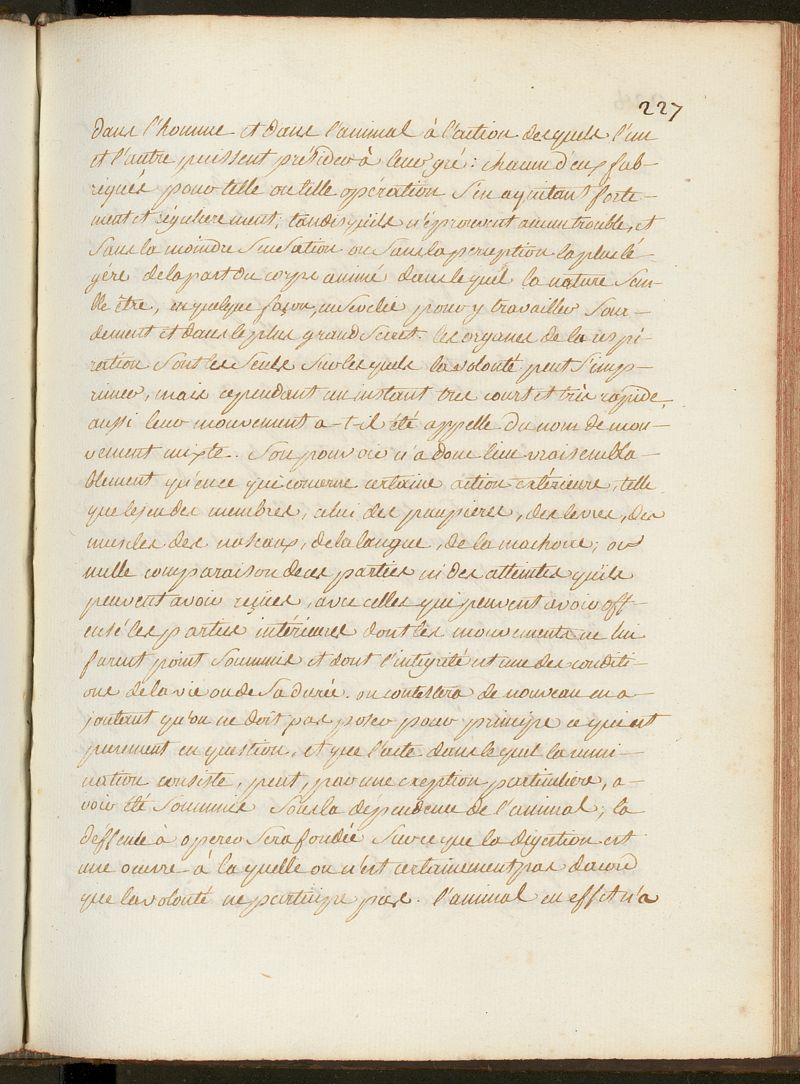 227
dans l'homme et dans l'animal à l'action desquels l'un
et l'autre puissent présider à leur gré : chacun d'eux fab-
riqués pour telle ou telle opération s'en aquitant forte-
ment et régulierement, tandis qu'ils n'éprouvent aucun trouble, et
sans la moindre sensation ou sans la perception la plus lé-
gére de la part du corps animé dans le quel la nature sem-
ble être, en quelque façon, enSevelie pour y travailler sour-
dement et dans le plus grand secret. les organes de la respi-
ration sont les seuls sur les quels la volonté peut s'imp-
rimer, mais cependant un instant tres court et très rapide,
aussi leur mouvement a-t-il été appellé du nom de mou-
vement mixte. Son pouvoir n'a donc lieu vraisembla-
blement qu'en ce qui concerne certaine action extérieure, telle
que le jeu des membres, celui des paupieres, des levres, des
muscles des naseaux, de la langue, de la machoire; or
nulle comparaison de ces parties ni des atteintes qu'ils
peuvent avoir reçües, avec celles qui peuvent avoir off-
ensé les parties intérieures dont les mouvements ne lui
furent point soummis et dont l'integrité est une des conditi-
ons de la vie ou de sa durée. on contestera de nouveau en a-
joutant qu'on ne doit pas poser pour principe ce qui est
purement en question, et que l'acte dans le quel la rumi-
nation consiste, peut, par une exeption particuliere, a-
voir été soummis sous la dependence de l'animal; la
deffense à operer sera fondée sur ce que la digestion est
une oeuvre à la quelle on n'est certainement pas dacord
que la volonté ne participe pas. l'animal en effet n'a